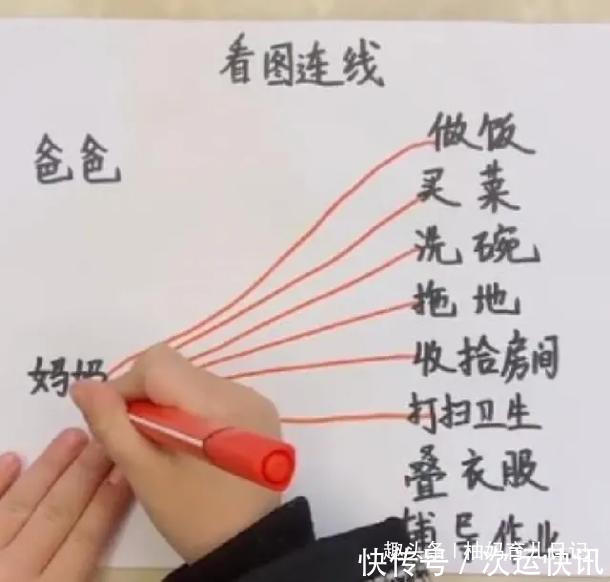 看图连线
爸爸
做饭
买菜
洗碗
拖地
妈妈
收拾房间
打扫卫生
叠衣服
辅导作业
趣头条 | 柚妈育儿日记
快传号／次运快讯